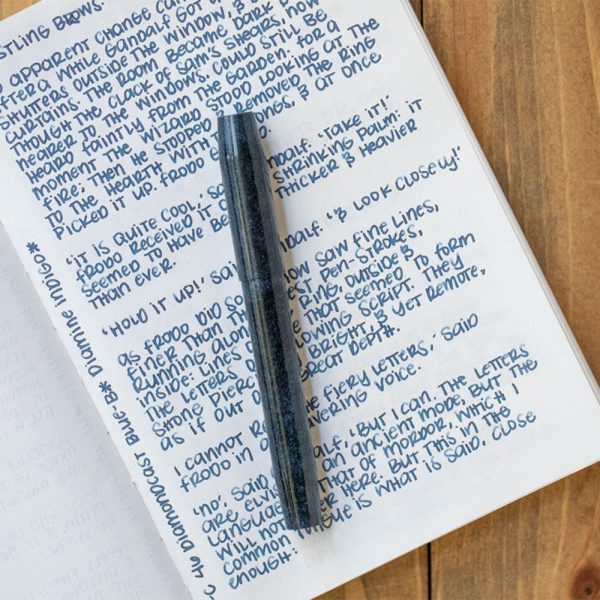 STLING BROWS.
APPARENT CHANGE CA
AFTER A WHILE GANDALF GOT
SHUTTERS OUTSIDE THE WINDOW, &
CURTAINS. THE ROOM BECAME DARK
THOUGH THE CLACK OF SAM'S SHEARS, NOW
NEARER TO THE WINDOWS, COULD STILL BE
HEARD FAINTLY FROM THE GARDEN. FOR A
MOMENT THE WIZARD STOOD LOOKING AT THE
FIRE; THEN HE STOOPED & REMOVED THE RING
TO THE HEARTH WITH ONGS, & AT ONCE
PICKED IT UP. FRODO G D.
'IT IS QUITE COOL,' SA ANDALF. 'TAKE IT!'
FRODO RECEIVED IT O SHRINKING PALM: IT
SEEMED TO HAVE BE THICKER & HEAVIER
THAN EVER.
'HOLD IT UP!' SAI NDALF. '& LOOK CLOSELY!'
AS FRODO DID SO OW SAW FINE LINES,
FINER THAN T EST PEN-STROKES,
RUNNING ALON RING, OUTSIDE &
INSIDE: LINES THAT SEEMED TO FORM
THE LETTERS O LOWING SCRIPT. THEY
SHONE PIERC BRIGHT, & YET REMOTE,
AS IF OUT O GREAT DEPTH.
I CANNOT RE E FIERY LETTERS,' SAID
FRODO IN A AVERING VOICE.
'NO,' SAID ALF, 'BUT I CAN. THE LETTERS
ARE ELVIS AN ANCIENT MODE, BUT THE
LANGUAGE THAT OF MORDOR, WHICH I
WILL NOT ER HERE. BUT THIS IN THE
COMMON TONGUE IS WHAT IS SAID, CLOSE
ENOUGH:
46 DIAMONDCAST BLUE-B* DIAMINE INDIGO*